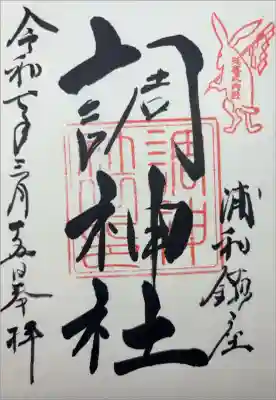 浦和鎮座
調神社
調神社
令和七年三月十五日奉拝